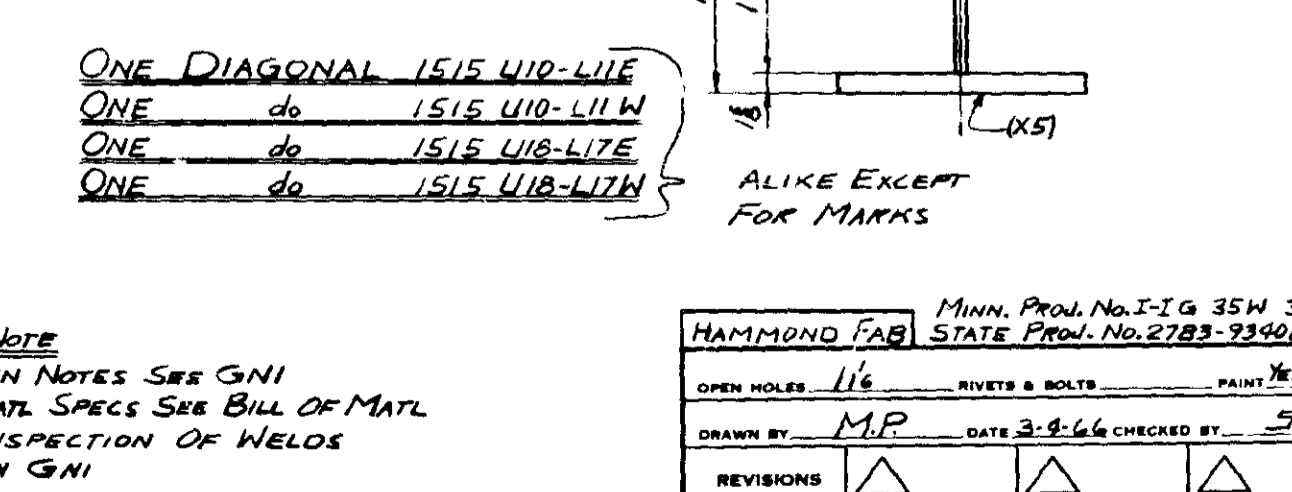 ONE DIAGONAL 1515 U10-L11E
ONE do 1515 U10-L11W
ONE do 1515 U18-L17E
ONE do 1515 U18-L17W
(X5)
ALIKE EXCEPT
FOR MARKS
NOTE
N NOTES SEE GN1
ATL SPECS SEE BILL OF MATL
NSPECTION OF WELDS
N GN1
MINN. PROJ. No. I-IG 35W 3
HAMMOND FAB STATE PROJ. No. 2783-9340
OPEN HOLES RIVETS & BOLTS PAINT YE
DRAWN BY M.P. DATE 3-9-66 CHECKED BY
REVISIONS